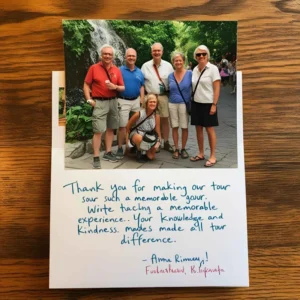 Thank you for making our tour
sour such a memorable your.
Write tucing a memorable
experience.. Your knowledge and
Kindness mades made all tour
difference.
- Anna Rinney,!